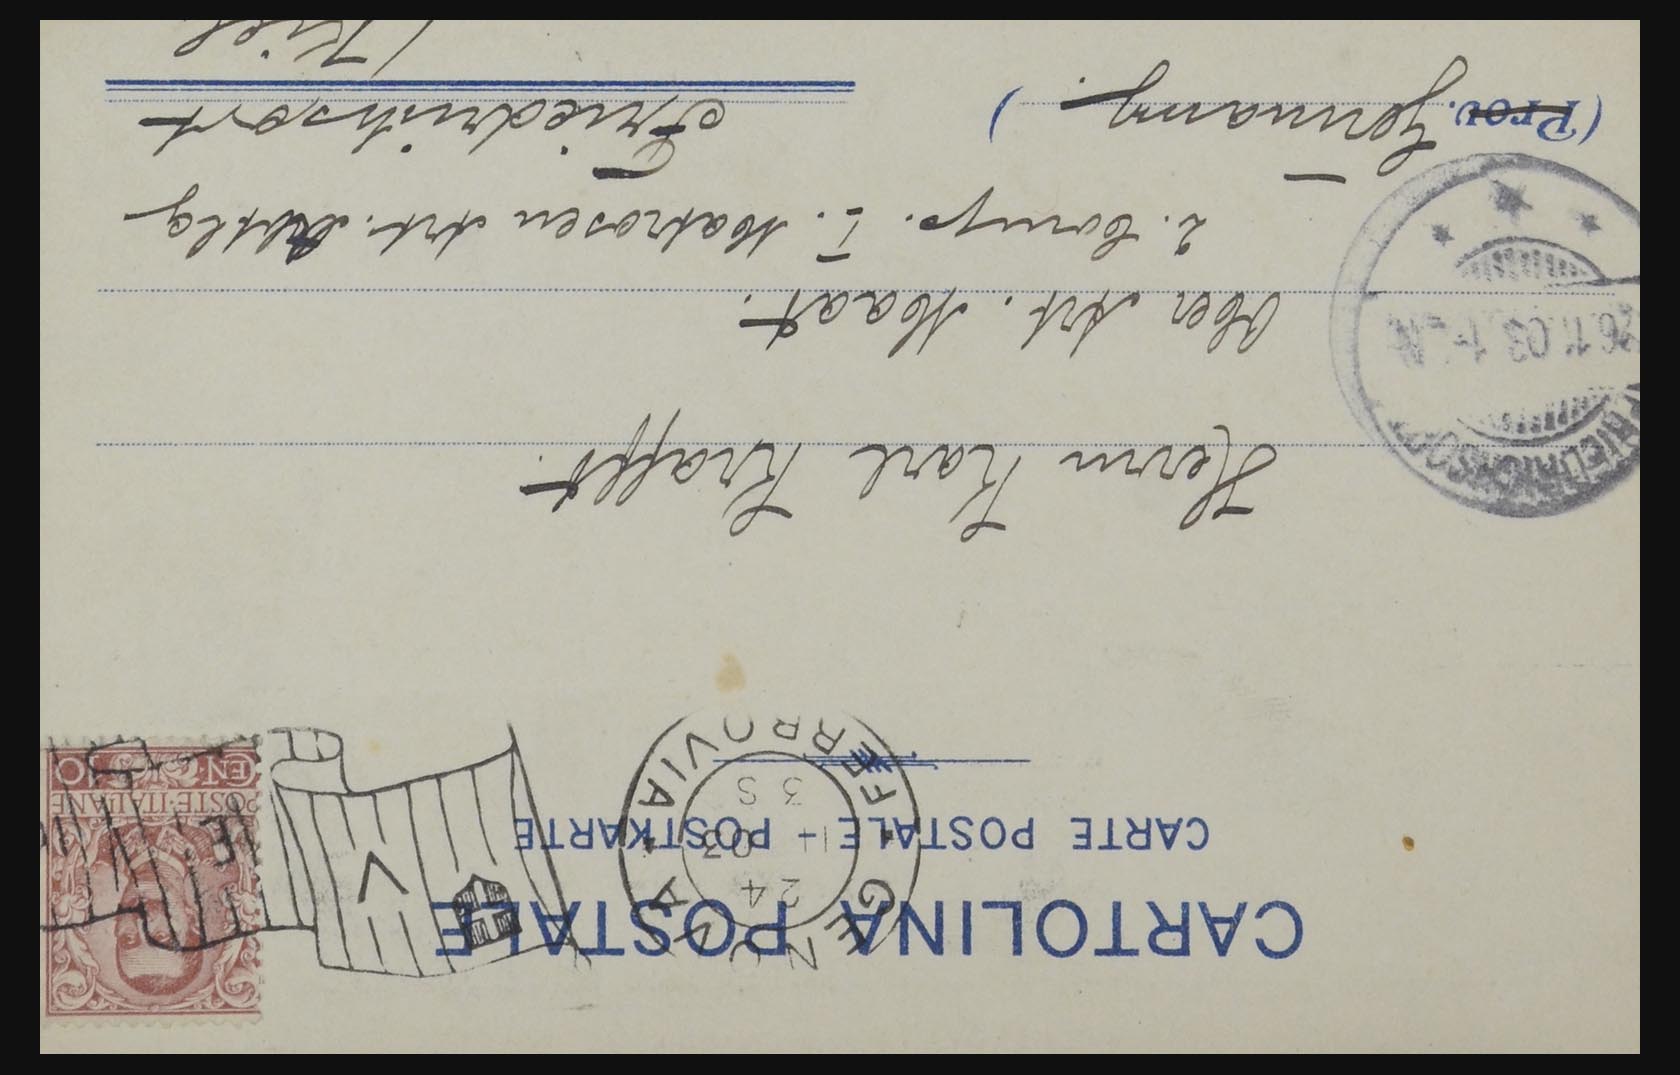 CARTOLINA POSTALE
CARTE POSTALE - POSTKARTE
GENOVA
FERROVIA
24
11 03
3 S
POSTE·ITALIANE
Herrn Karl Krafft.
Ober Art. Maat.
2. Comp. I. Matrosen Art. Abtlg
Friedrichsort
(Prov. Germany.)
(Kiel
FRIEDRICHSORT
26.11.03